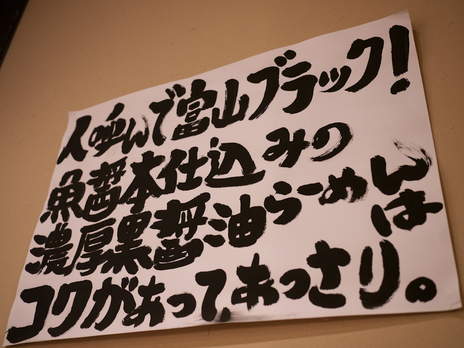 人呼んで富山ブラック!
魚醤本仕込みの
濃厚黒醤油らーめんは
コクがあってあっさり。